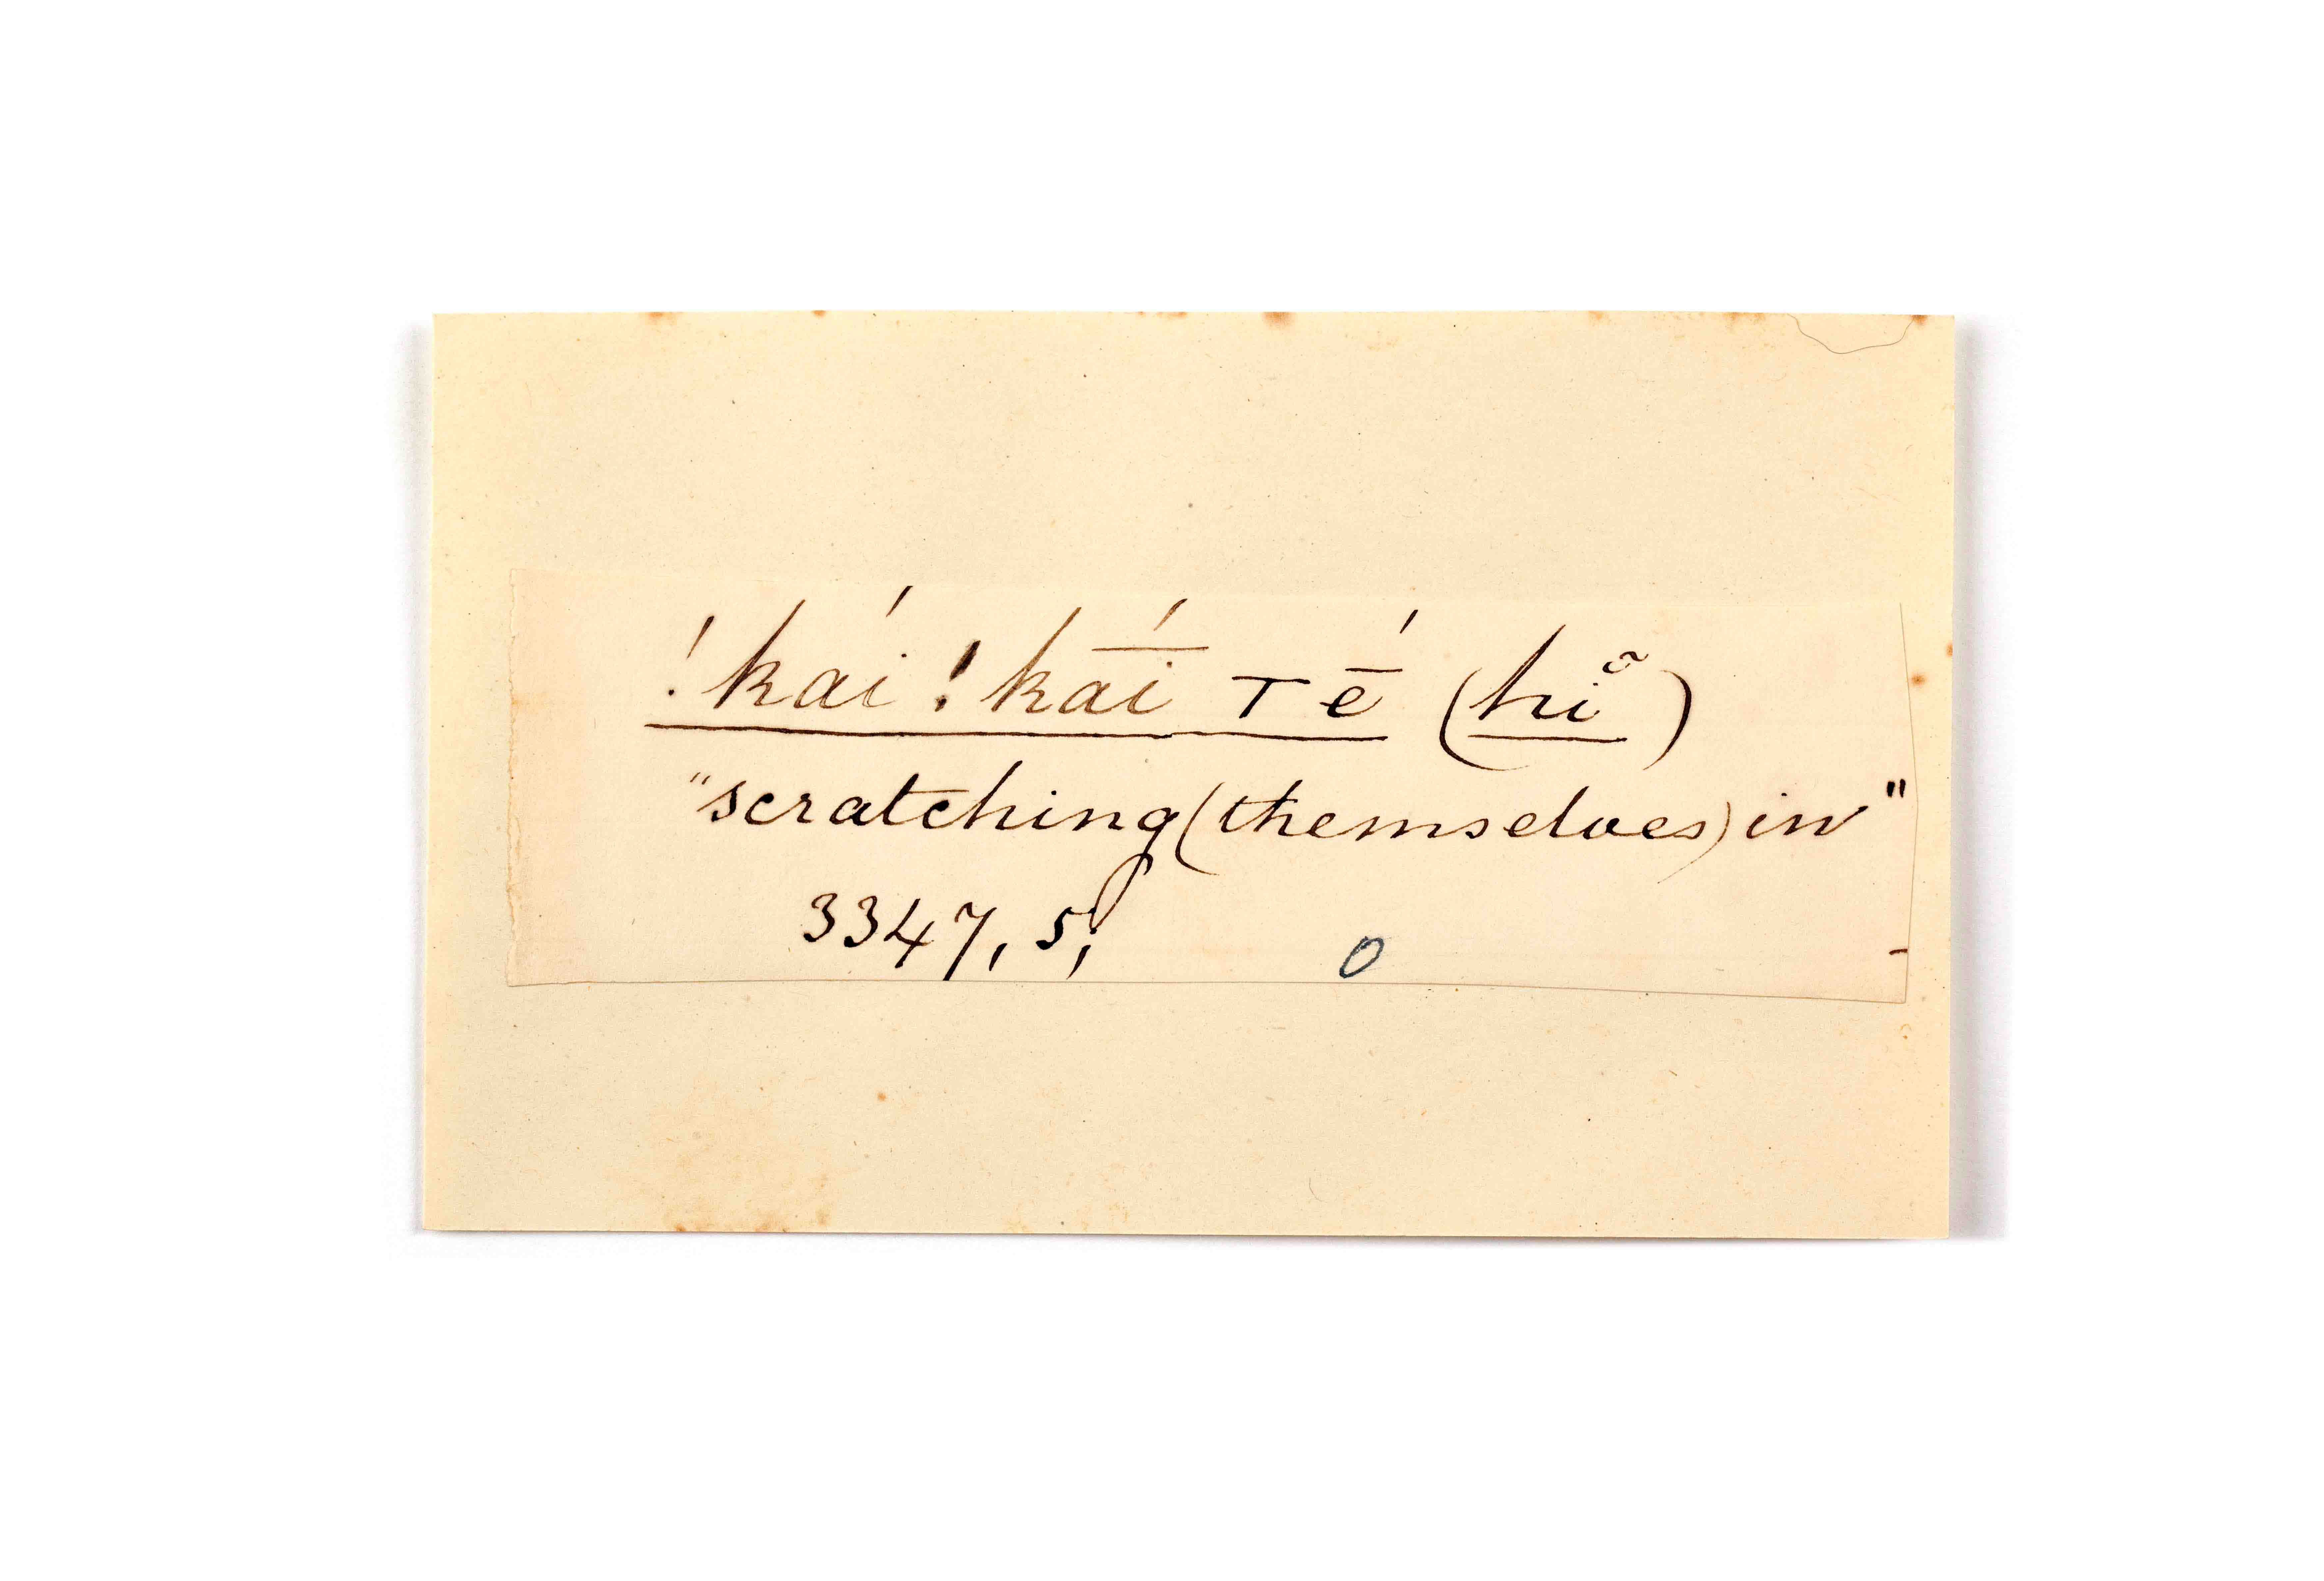 !kaí !kā́í τ ḗ (hĩ)
"scratching (themselves) in"
3347, 5;
0